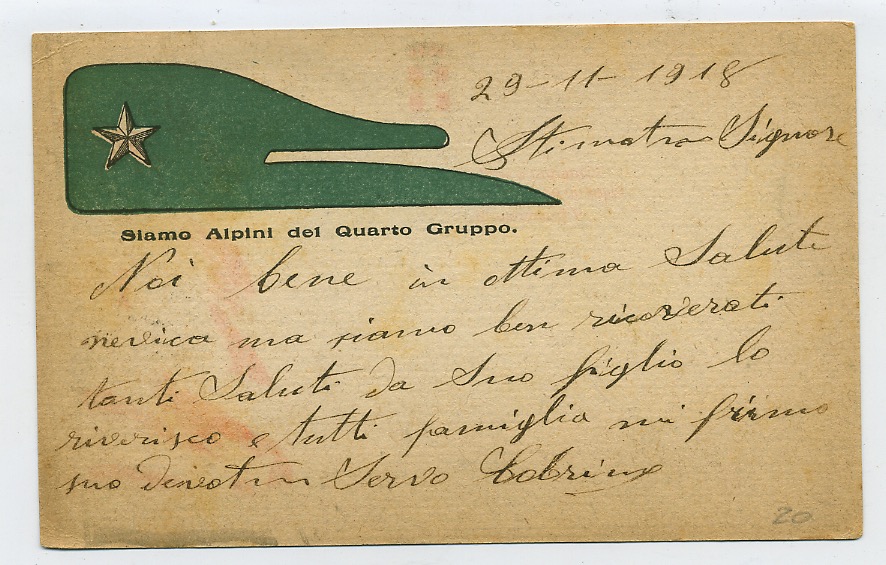 29-11-1918
Stimatmo Signore
Siamo Alpini del Quarto Gruppo.
Noi bene in ottima Salute
nevica ma siamo ben ricoverati
tanti Saluti da Suo figlio lo
riverisco e tutti famiglia mi firmo
suo Servo
20